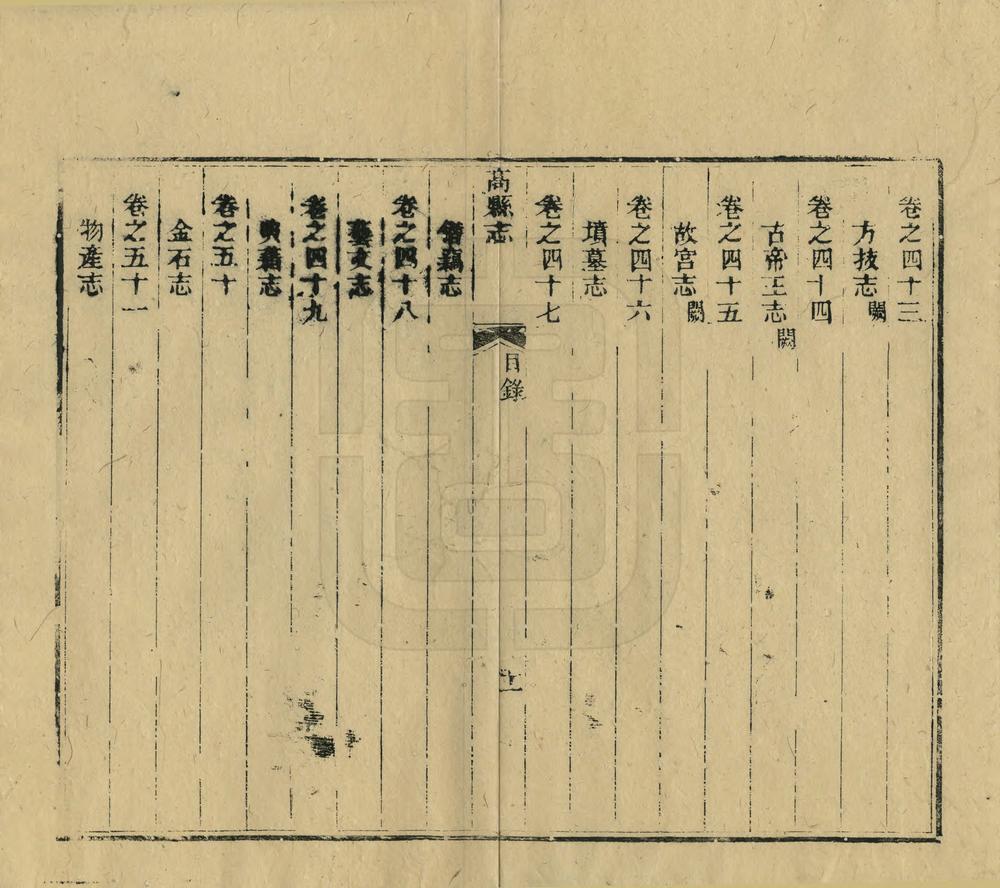 卷之四十三
方技志 闕
卷之四十四
古帝王志 闕
卷之四十五
故宮志 闕
卷之四十六
墳墓志
卷之四十七
高縣志
目錄
十一
僭竊志
卷之四十八
藝文志
卷之四十九
典籍志
卷之五十
金石志
卷之五十一
物產志